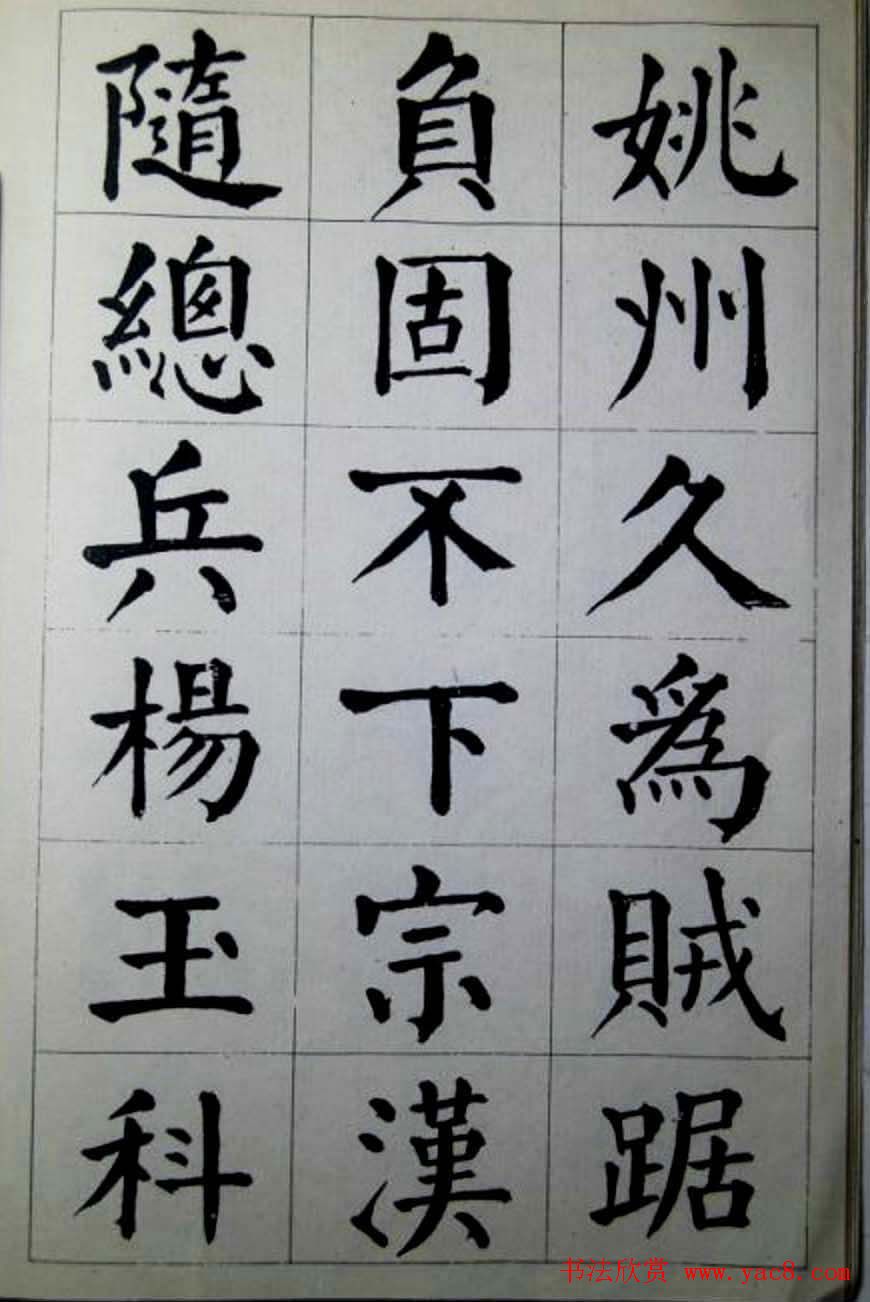 姚州久爲賊踞
負固不下宗漢
隨總兵楊玉科
书法欣赏 www.yac8.com